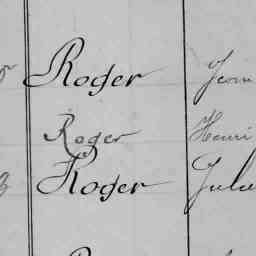 Roger Jean
Roger Henri
Roger Jules